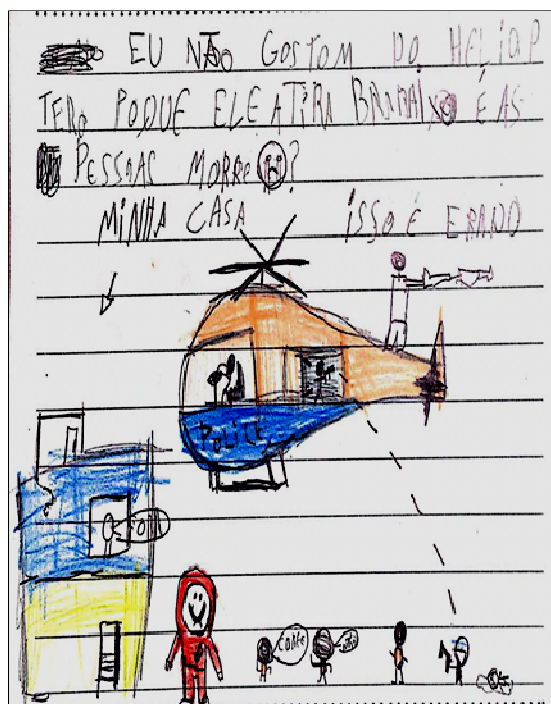 EU NÃO GOSTOM DO HELIOP
TERO PODUE ELE ATIRA BRAMAI É AS
PESSOAS MORRE ?
MINHA CASA ISSO É ERADO
POLICE